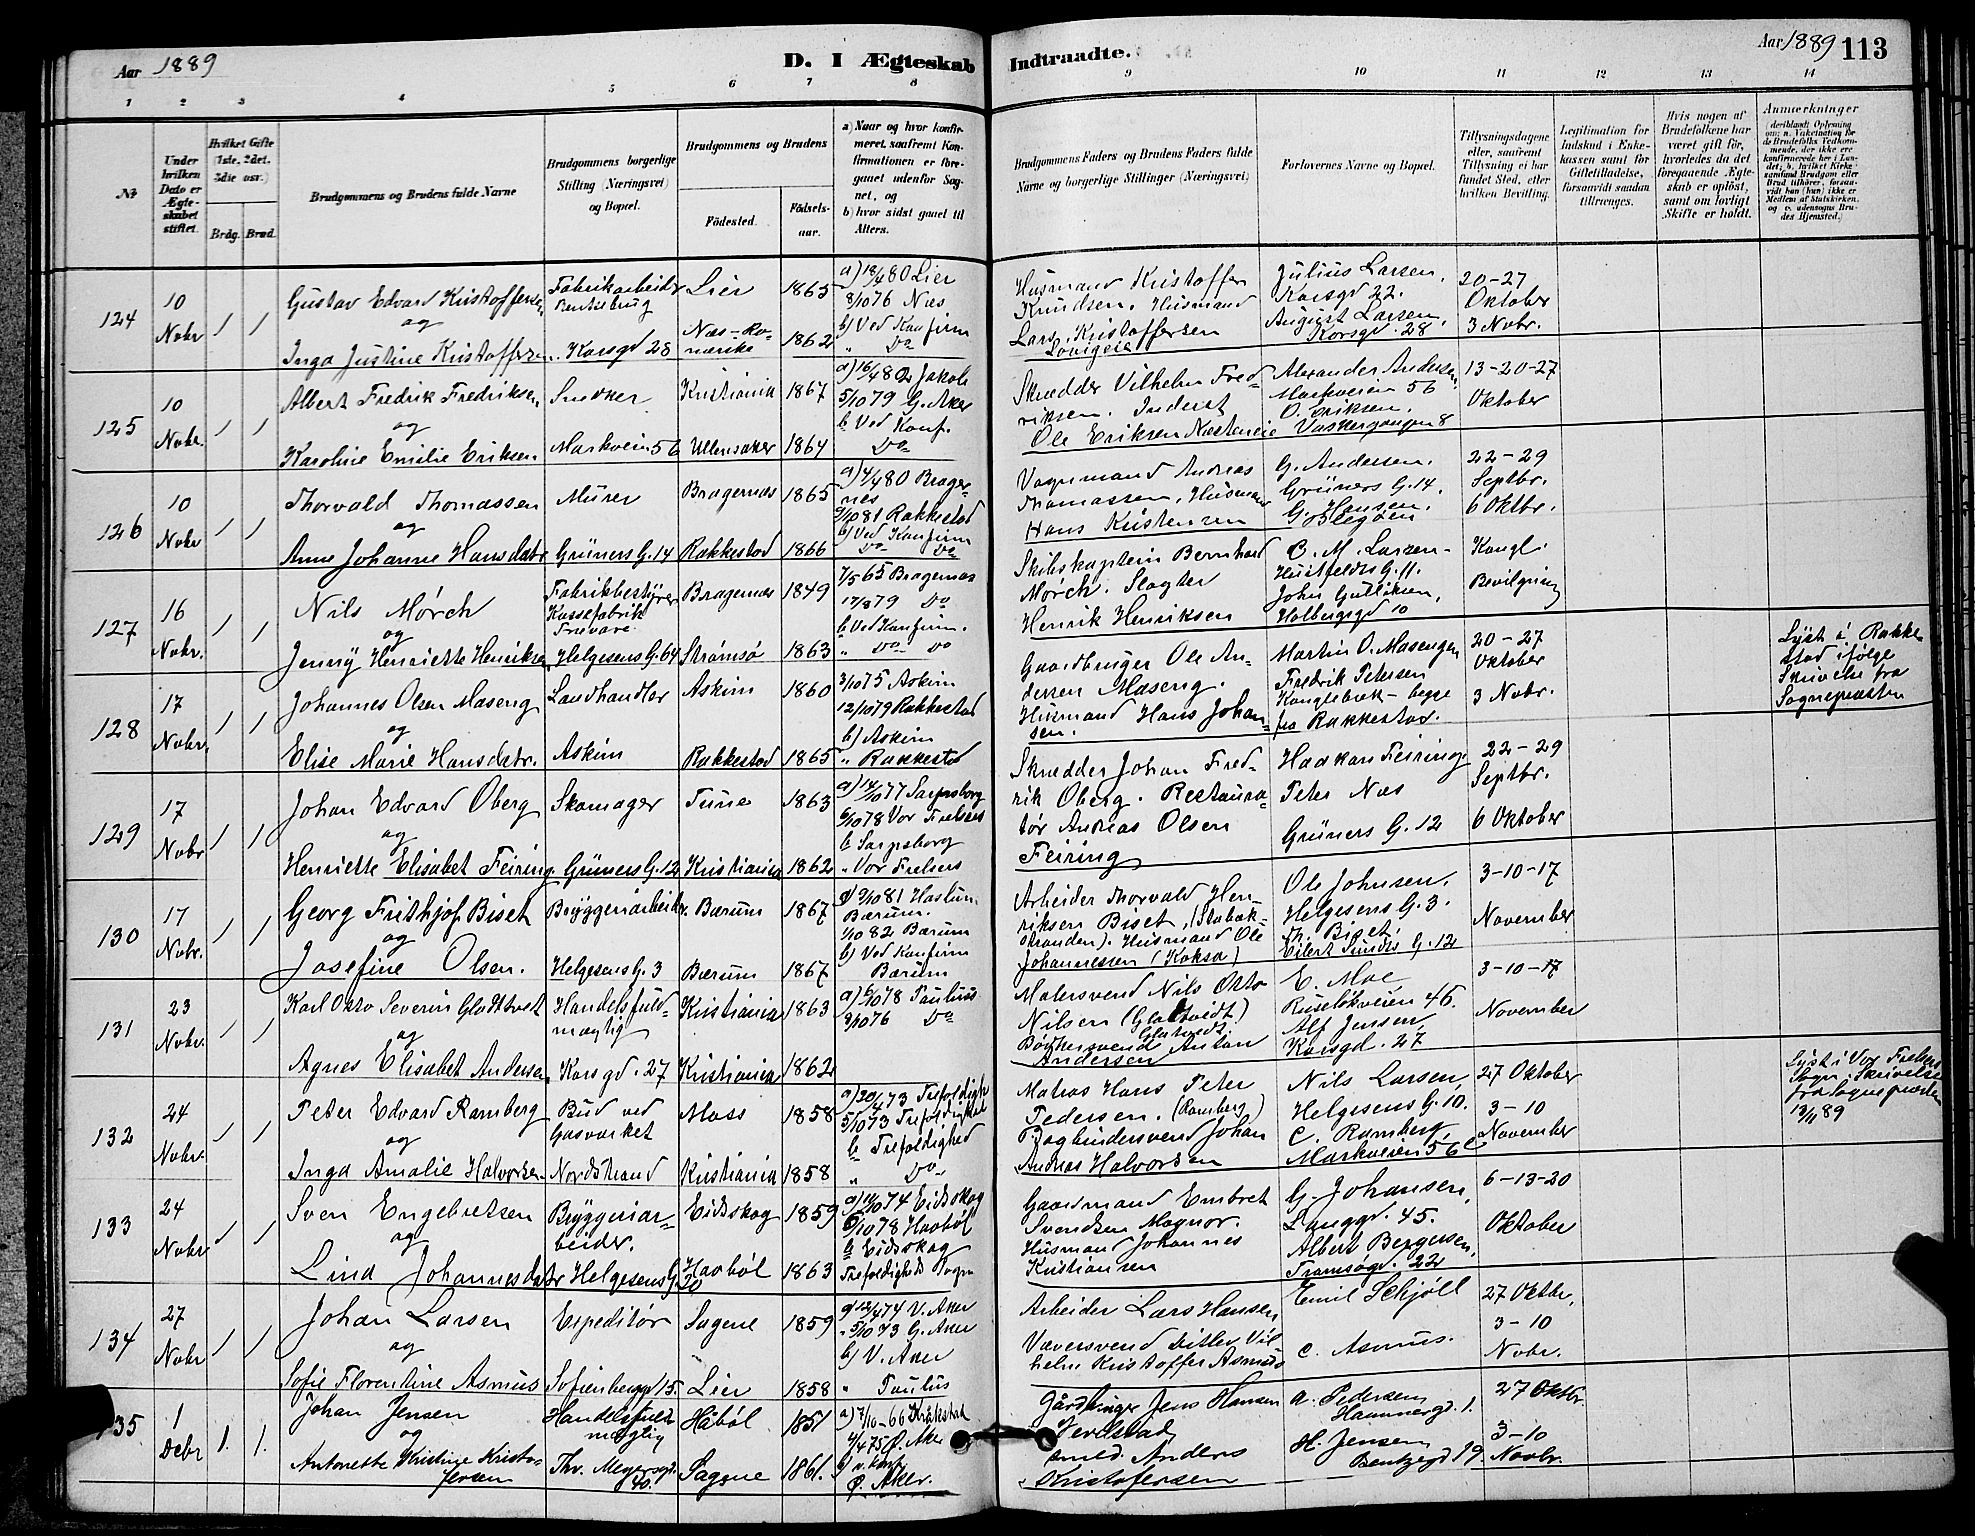 Aar 1889
D. I Ægteskab Indtraadte.
Aar 1889 113
1 2 3 4 5 6 7 8 9 10 11 12 13 14
No
Under hvilken Dato er Ægteskabet stiftet.
Hvilket Gifte (1ste, 2det, 3die osv.)
Brdg. Brud.
Brudgommens og Brudens fulde Navne
Brudgommens borgerlige Stilling (Næringsvei) og Bopæl.
Brudgommens og Brudens
Fødested. Fødselsaar.
a) Naar og hvor konfirmeret, saafremt Konfirmationen er foregaaet udenfor Sognet, og
b) hvor sidst gaaet til Alters.
Brudgommens Faders og Brudens Faders fulde Navne og borgerlige Stillinger (Næringsvei)
Forlovernes Navne og Bopæl.
Tillysningsdagene eller, saafremt Tillysning ei har fundet Sted, efter hvilken Bevilling.
Legitimation for Indskud i Enkekassen samt for Giftetilladelse, forsaavidt saadan tiltrænges.
Hvis nogen af Brudefolkene har været gift før, hvorledes da det foregaaende Ægteskab er opløst, samt om lovligt Skifte er holdt.
Anmærkninger
124 10 Nobr 1 1
Gustav Edvard Kristoffersen
og
Inga Justine Kristoffersen
Fabrikarbeider
Korsgd 28
Lier 1865
Næs-Romerike 1862
a) 18/4 80 Lier
8/10 76 Næs
b) Ved Konfirm
" Do
Husmand Kristoffer
Knudsen. Husmand
Lars Kristoffersen
Julius Larsen,
Korsgd 22.
August Larsen,
Korsgd. 28
20-27
Oktober
3 Nobr.
125 10 Nobr. 1 1
Albert Fredrik Fredriksen
og
Karoline Emilie Eriksen
Snedker
Markvein 56
Kristiania 1867
Ullensaker 1864
a) 16/4 82 Jakob
5/10 79 G. Aker
b Ved Konf.
Do
Skrædder Vilhelm Fredriksen. Inderst
Ole Eriksen Næsteneie
Alexander Andersen
Markveien 56
O. Eriksen,
Vaskergangen 8
13-20-27
Oktober
126 10 Nobr 1 1
Thorvald Thomassen
og
Anne Johanne Hansdatr
Murer
Grüners G. 14
Bragernæs 1865
Rakkestad 1866
a) 4/4 80 Bragernes
9/10 81 Rakkestad
b) Ved Konfirm
Do Do
Vognmand Andreas
Thomassen, Husmand
Hans Kristensen
G. Andersen,
Grüners G. 14.
G. Hansen,
22-29
Septbr.
6 Oktbr.
127 16 Nobr. 1 1
Nils Mørch
og
Jenny Henriette Henriksen
Fabrikbestyrer
Kassefabrik
Trevare
Helgesens G. 64
Bragernæs 1849
Strømsø 1863
7/5 65 Bragernæs
17/8 79 Do
b Ved Konfirm.
" Do Do
Skibskaptein Bernhard
Mørch. Slagter
Henrik Henriksen
C. M. Larsen-
Huitfeldts G. 11.
John Gulliksen,
Holbergsgd 10
Kongl.
Bevilgning
128 17 Nobr, 1 1
Johannes Olsen Maseng
og
Elise Marie Hansdatr.
Landhandler
Askim
Askim 1860
Rakkestad 1865
3/10 75 Askim
12/10 79 Rakkestad
b) Askim
" Rakkestad
Gaardbruger Ole Andersen Maseng.
Husmand Hans Johansen.
Martin O. Masengen
Fredrik Petersen
Kanglebæk- begge
fra Rakkestad.
20-27
Oktober
3 Nobr.
Lyst i Rakkestad ifølge
Skrivelse fra
Sognepræsten
129 17 Nobr 1 1
Johan Edvard Oberg
og
Henriette Elisabet Feiring
Skomager
Grüners G. 12
Tune 1863
Kristiania 1862
a) 14/10 77 Sarpsborg
6/10 78 Vor Frelsers
b Sarpsborg
" Vor Frelsers
Skrædder Johan Fredrik Oberg. Restauratør Andreas Olsen
Feiring
Haakon Feiring
Peter Næs
Grüners G. 12
22-29
Septbr.
6 Oktober
130 17 Nobr. 1 1
Georg Frithjof Biset
og
Josefine Olsen.
Bryggeriarbeider
Helgesens G. 3
Bærum 1867
Bærum 1867
a) 9/10 81 Haslum
Bærum.
1/10 82 Bærum
b) Ved Konfirm
Bærum
Arbeider Thorvald Henriksen Biset, (Stabækstranden). Husmand Ole
Johannessen (Koksa)
Ole Johnsen,
Helgesens G. 3.
Th. Biset,
Eilert Sundts G. 12
3-10-17
November
131 23 Nobr. 1 1
Karl Otto Severin Glattvedt
og
Agnes Elisabet Andersen
Handelsfuldmægtig
Korsgd. 27
Kristiania 1863
Kristiania 1862
a) 6/10 78 Paulus
8/10 76 Do
Malersvend Nils Otto
Nilsen (Glattvedt)
Bødkersvend Anton
Andersen
E. Moe,
Ruseløkveien 46.
Alf Jensen,
Korsgd. 27
3-10-17
November
132 24 Nobr. 1 1
Peter Edvard Ramberg
og
Inga Amalie Halvorsen
Bud ved
Gasværket
Nordstrand
Moss 1858
Kristiania 1858
a) 20/4 73 Trefoldigh
5/10 73 Trefoldighed
b Trefoldighed
" Do
Matros Hans Peter
Pedersen. (Ramberg)
Bogbindersvend Johan
Andreas Halvorsen
Nils Larsen,
Helgesens G. 10.
C. Ramberg,
Markveien 56 c
27 Oktober
3-10
November
Lyst i Vor Frelsers
Sogn. Skrivelse
fra Sognepræsten
13/11 89
133 24 Nobr 1 1
Sven Engebretsen
og
Lina Johannesdatr
Bryggeriarbeider.
Helgesens G. 10
Eidskog 1859
Haabøl 1863
a) 14/10 74 Eidskog
6/10 78 Haabøl
b Eidskog
Trefoldigheds Sogn
Gaardmand Embret
Svendsen Magnor.
Husmand Johannes
Kristiansen
G. Johansen,
Langgd. 45.
Albert Bergersen,
Tromsøgd. 22
6-13-20
Oktober
134 27 Nobr 1 1
Johan Larsen
og
Sofie Florentine Asmus
Expeditør
Sofienbergd 15.
Sagene 1859
Lier 1858
a) 12/4 74 V. Aker
" 5/10 73 G. Aker
b) V. Aker
" Paulus
Arbeider Lars Hansen
Væversvend Ditlev Vilhelm Kristoffer Asmus
Emil Schjøll
C. Asmus.
27 Oktbr,
3-10
Nobr.
135 1 Debr 1. 1.
Johan Jensen
og
Antonette Kristine Kristofersen
Handelsfuldmægtig
Thv. Meyersgd.
Håbøl 1851
Sagene 1861.
a) 7/10-66 Kråkstad
4/4 75 Ø. Aker
b) v. konf.
Ø. Aker.
Gårdbruger Jens Hansen
Smed. Anders
Kristofersen
A. Pedersen
Hammergd. 1.
H. Jensen
Bentzegd 19.
27 Oktbr
3-10
Novbr.